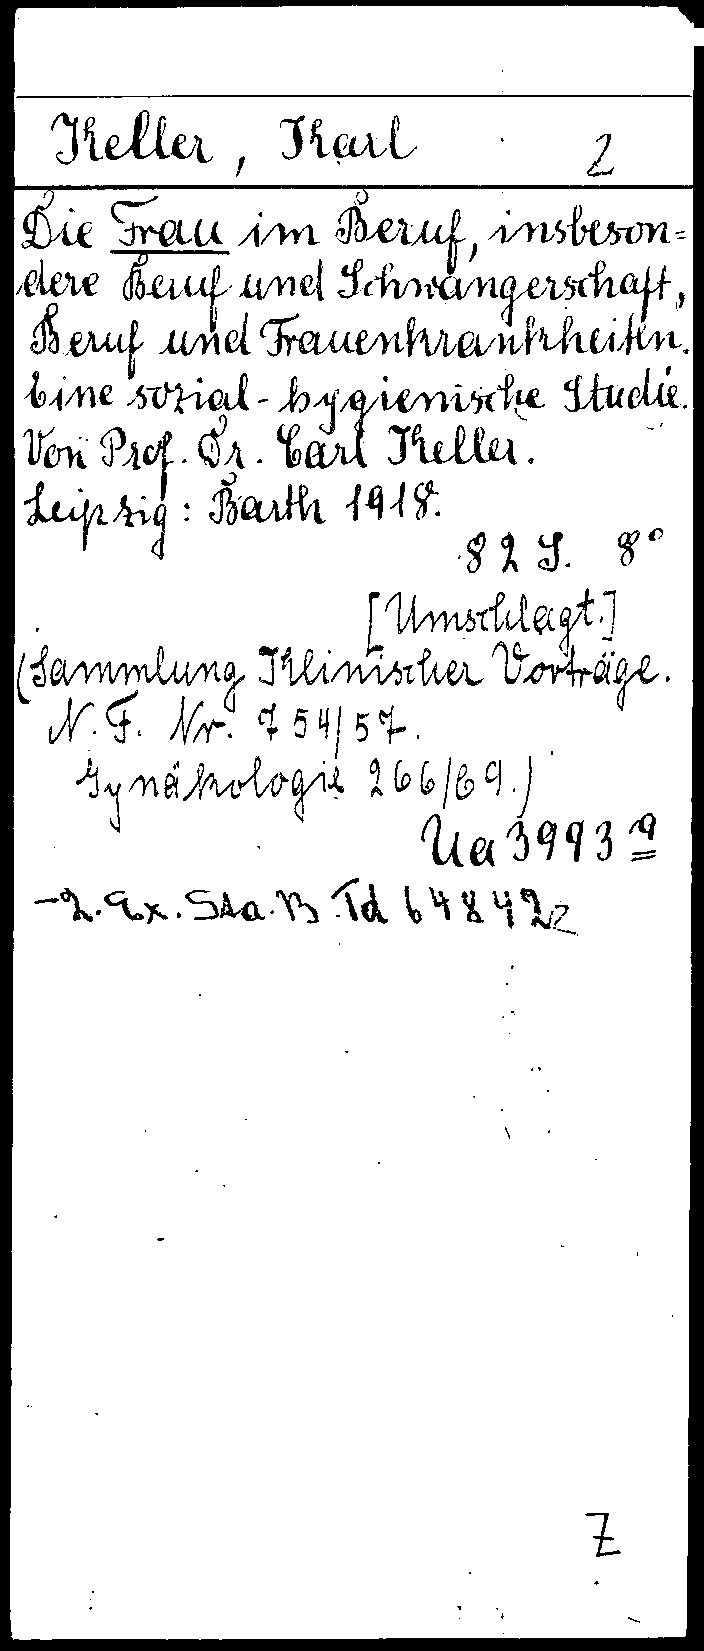 Keller, Karl 2
Die Frau im Beruf, insbeson=
dere Beruf und Schwangerschaft,
Beruf und Frauenkrankheiten.
Eine sozial-hygienische Studie.
Von Prof. Dr. Carl Keller.
Leipzig: Barth 1918.
82 S. 8°
[Umschlagt.]
(Sammlung Klinischer Vorträge.
N. F. Nr. 754/57.
Gynäkologie 266/69.)
Ua 3993 a
-2. Ex. Sta.B. Td 64842
Z